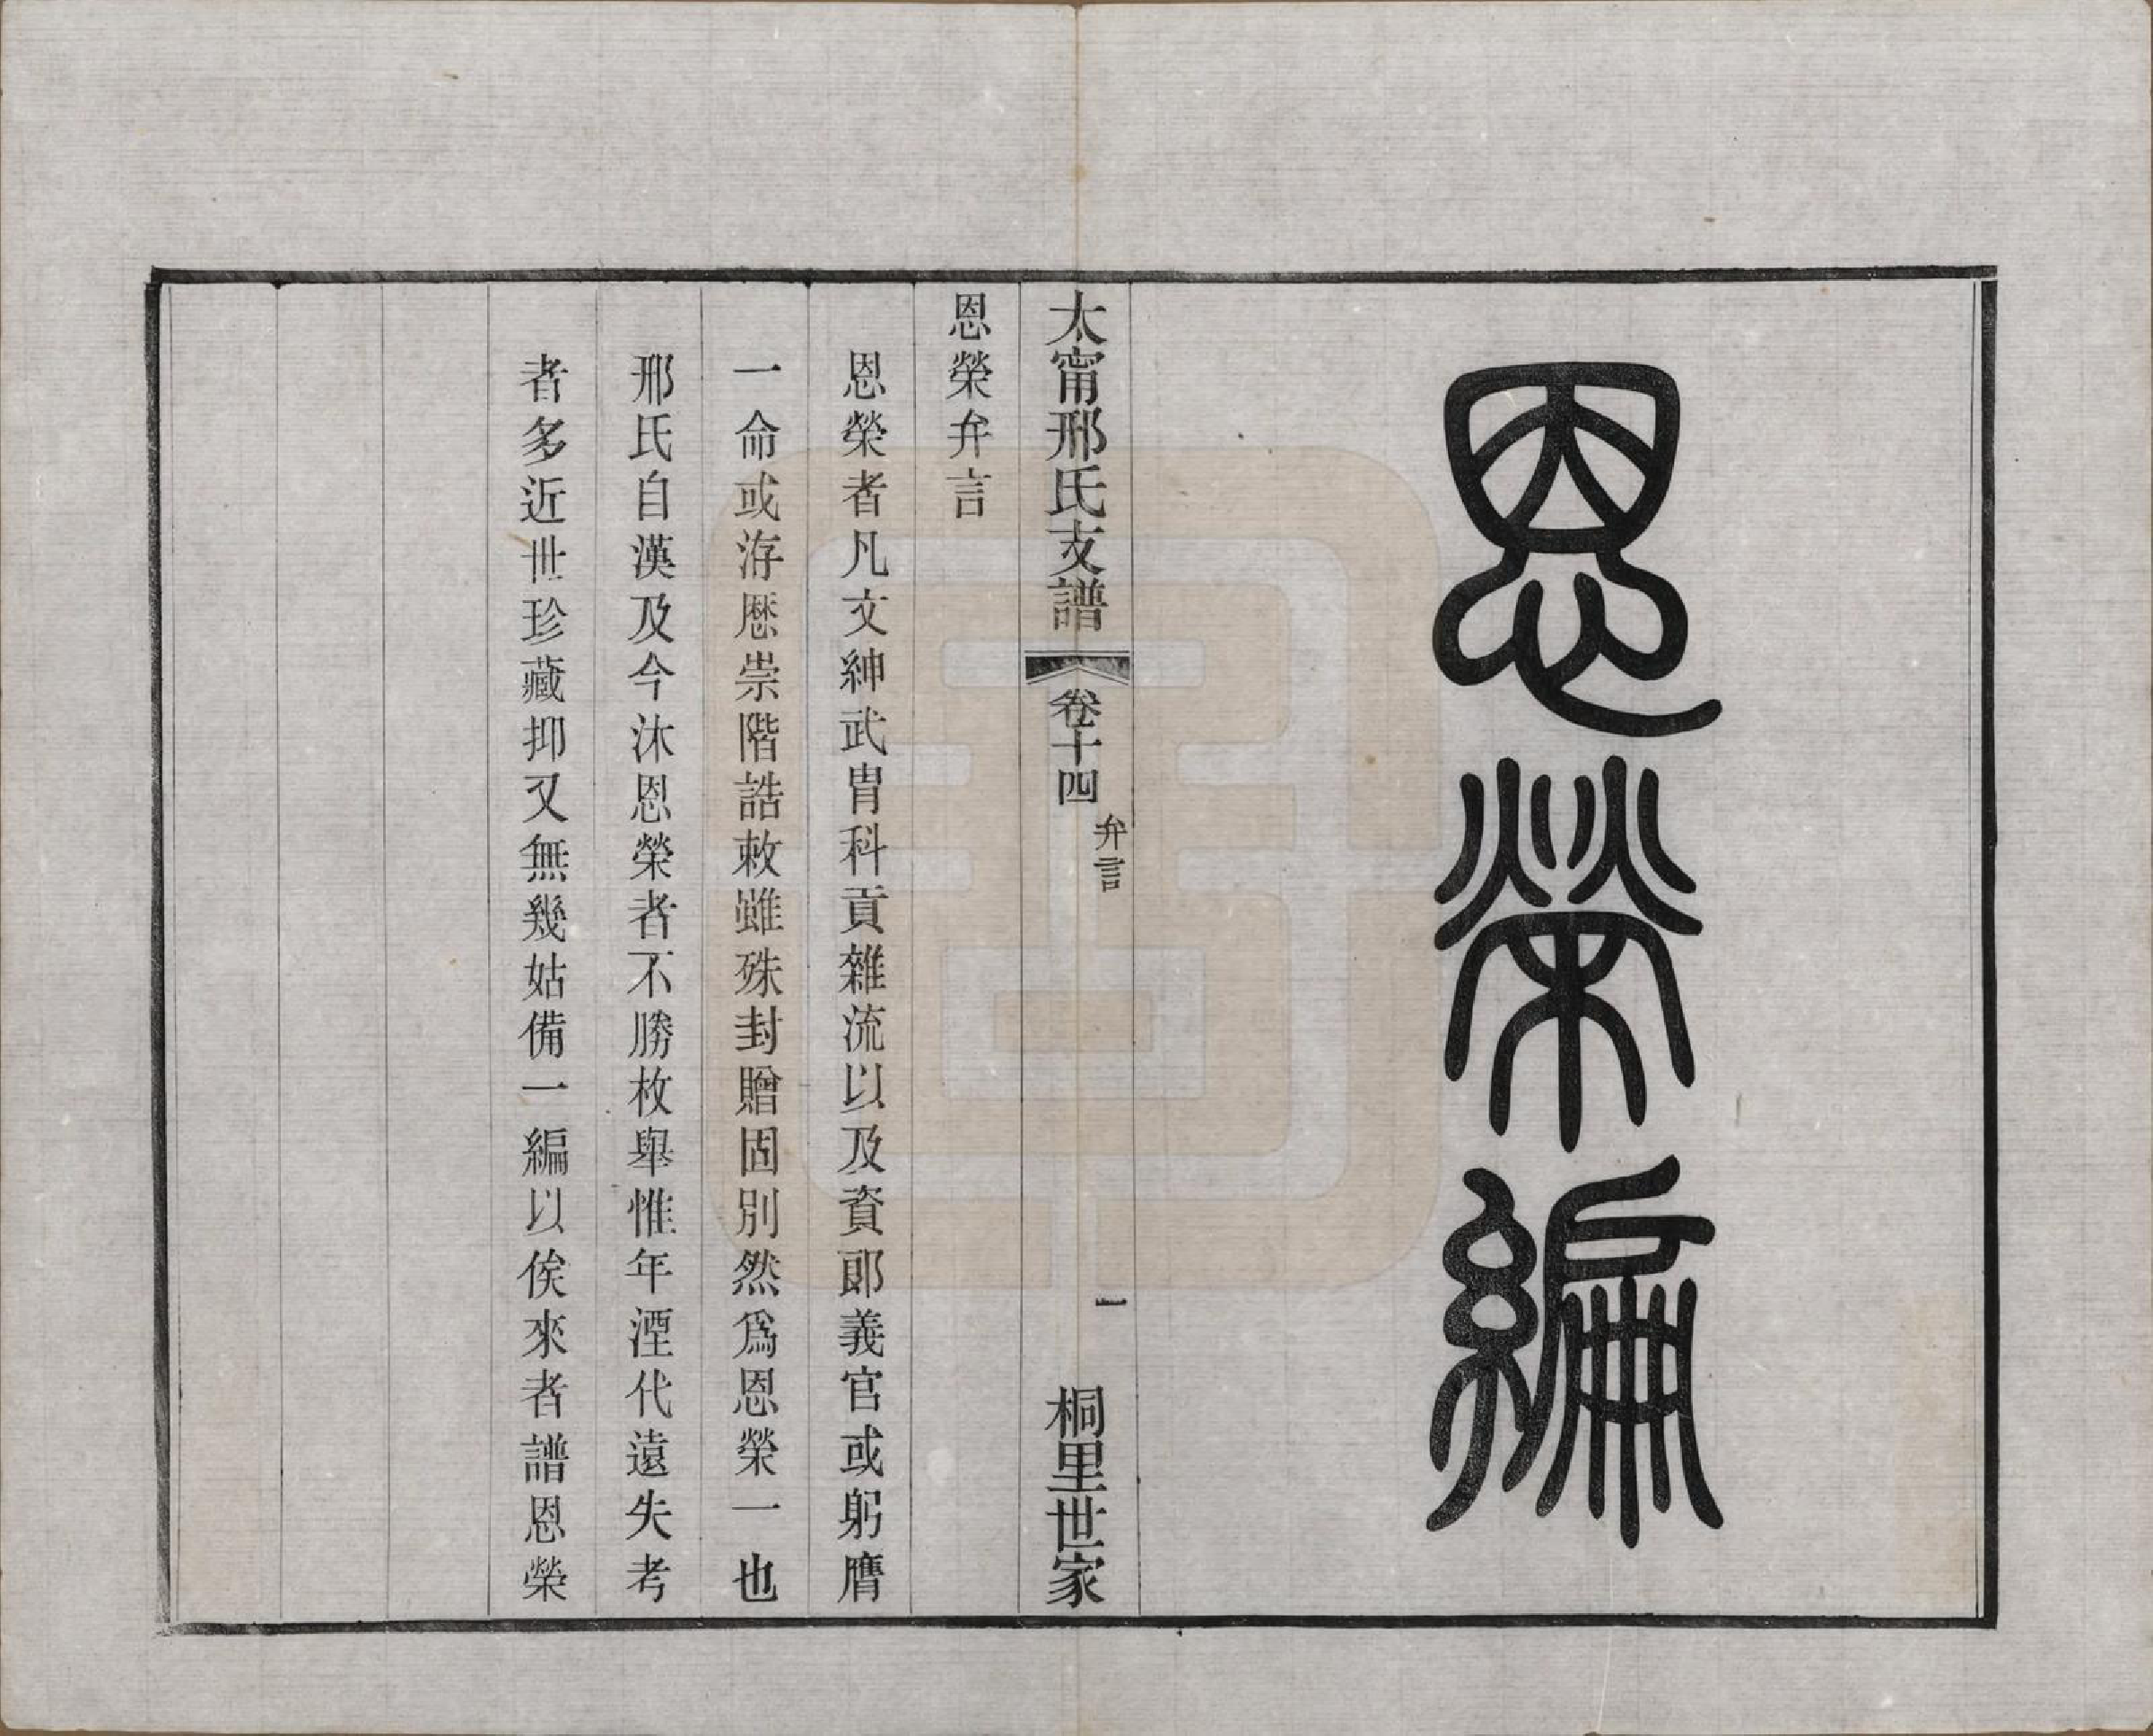 恩榮編
太甯邢氏支譜
卷十四
弁言
一
桐里世家
恩榮弁言
恩榮者凡文紳武胄科貢雜流以及資郎義官或躬膺
一命或洊歷崇階誥敕雖殊封贈固別然爲恩榮一也
邢氏自漢及今沐恩榮者不勝枚舉惟年湮代遠失考
者多近世珍藏抑又無幾姑備一編以俟來者譜恩榮